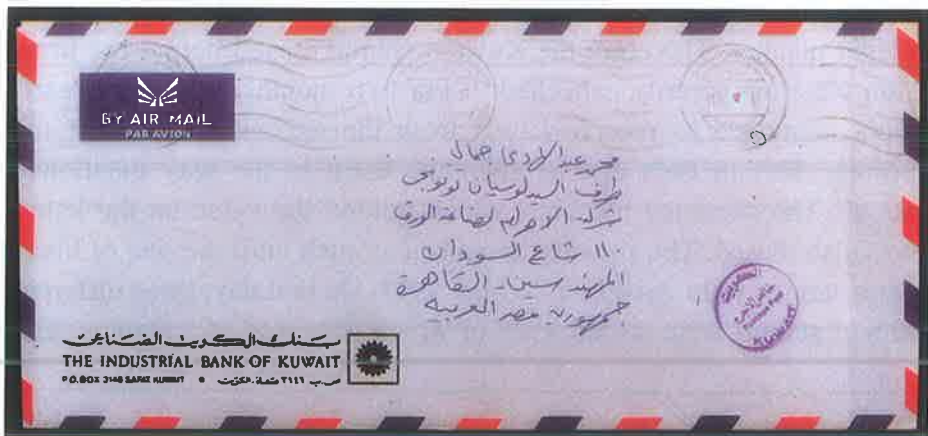 BY AIR MAIL
PAR AVION
محمد عبد الهادي جمال
طرف السيد لوسيان
شركة الاهرام لصناعة الورق
١١ شارع السودان
المهندسين - القاهرة
جمهورية مصر العربية
KUWAIT
بنك الكويت الصناعي
THE INDUSTRIAL BANK OF KUWAIT
P.O.BOX 3146 SAFAT KUWAIT • ص.ب ٣١٤٦ صفاة. الكويت